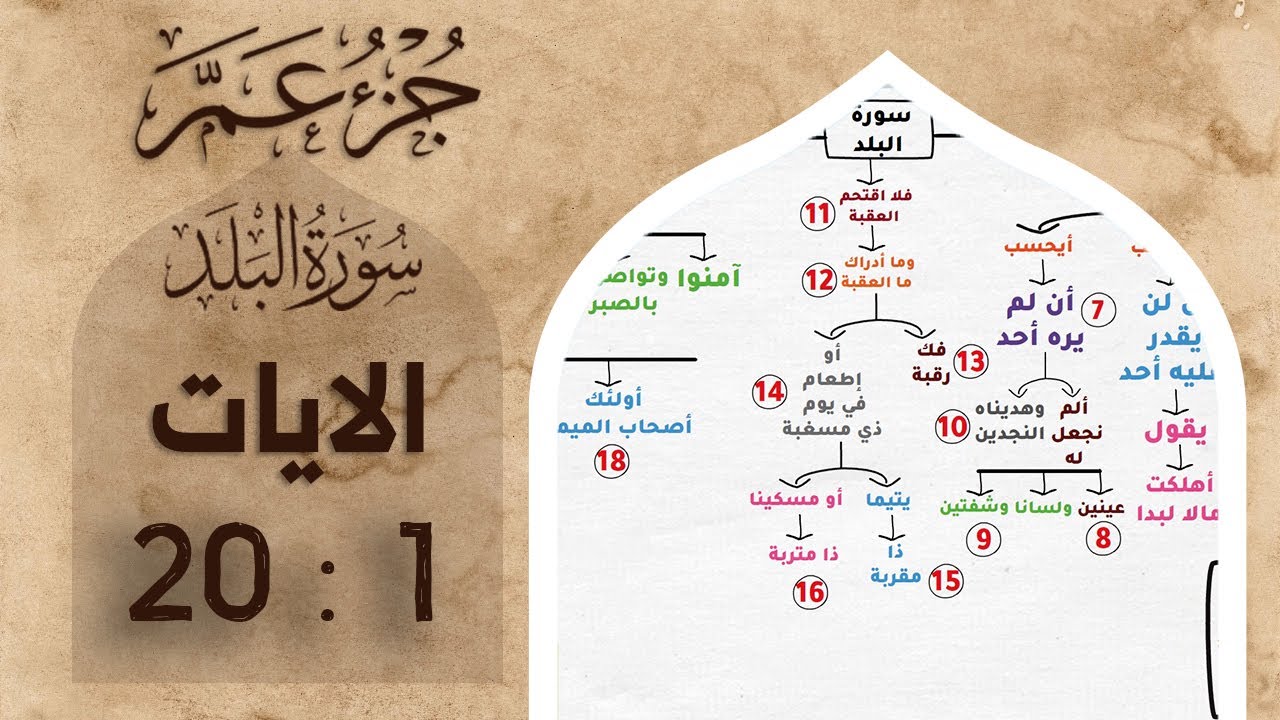 جُزْءُ عَمَّ
سُورَةُ البَلَد
الايات
1 : 20
سورة
البلد
فلا اقتحم
العقبة
11
وما أدراك
ما العقبة
12
فك
رقبة
13
أو
إطعام
في يوم
ذي مسغبة
14
يتيما
ذا
مقربة
15
أو مسكينا
ذا متربة
16
أيحسب
أن لم
يره أحد
7
ألم
نجعل
له
عينين
8
ولسانا وشفتين
9
وهديناه
النجدين
10
لن
يقدر
عليه أحد
يقول
أهلكت
مالا لبدا
آمنوا
بالصبر
أولئك
أصحاب
18